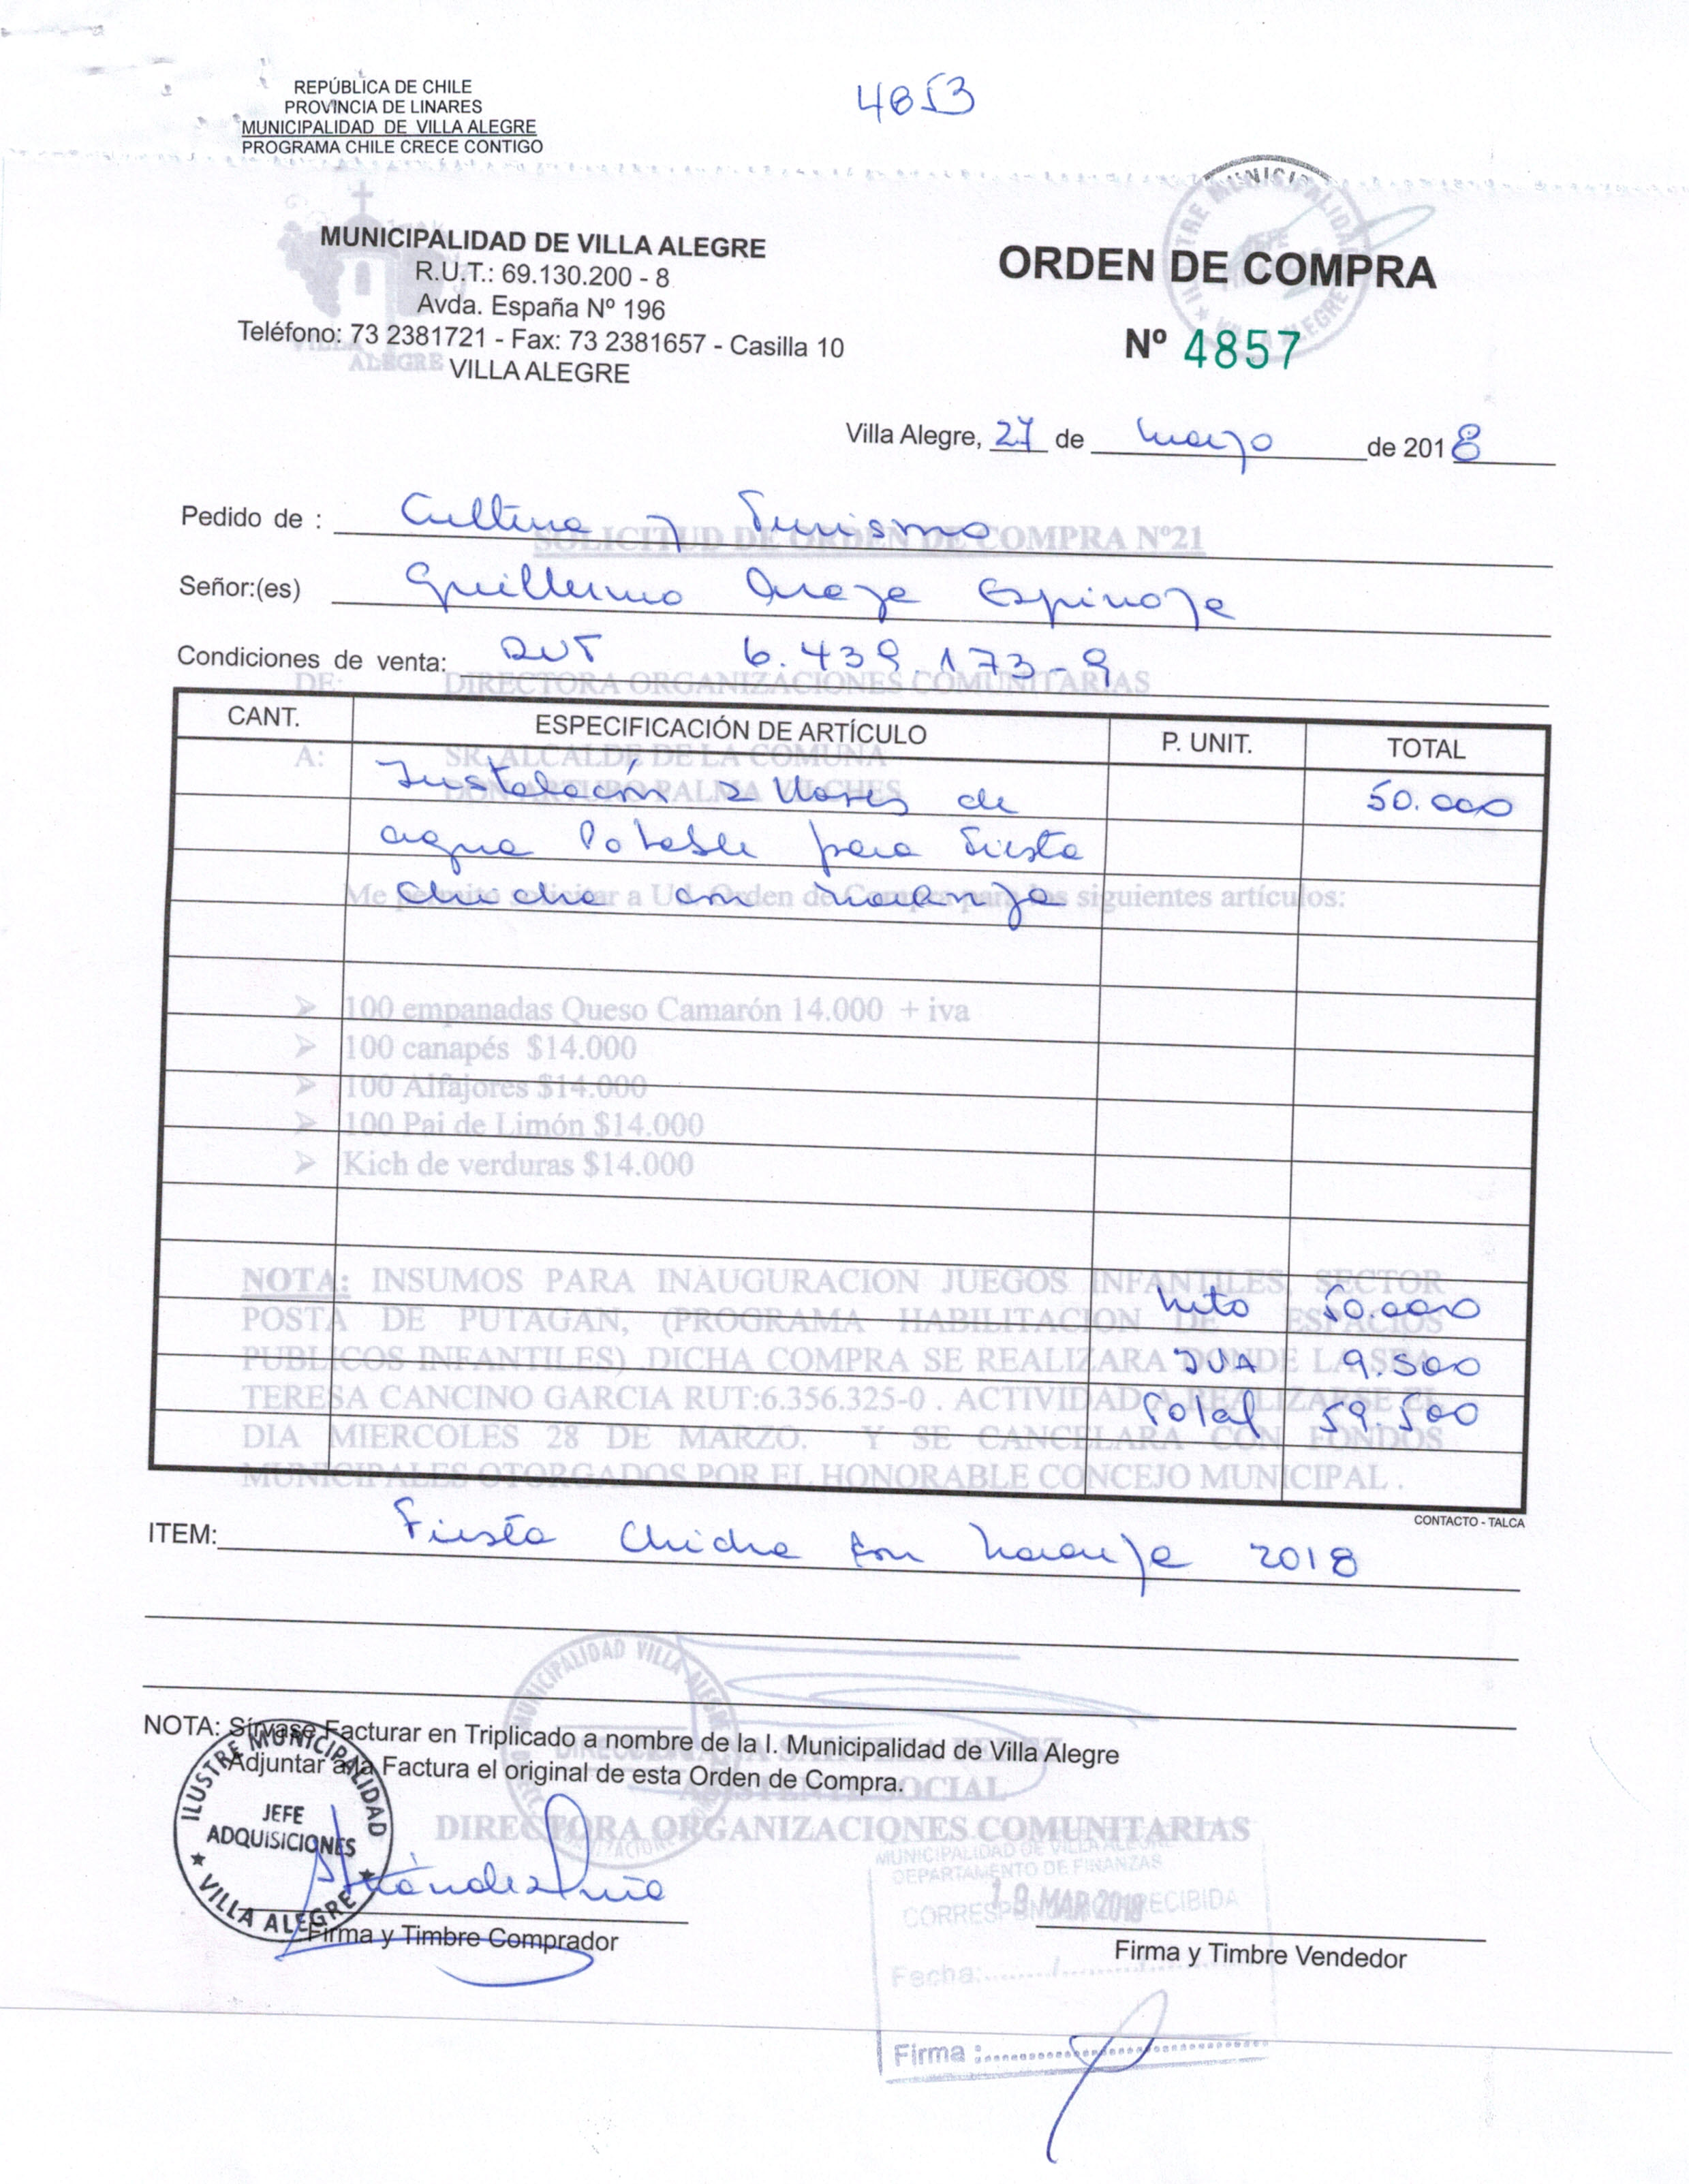 4853
REPÚBLICA DE CHILE
PROVINCIA DE LINARES
MUNICIPALIDAD DE VILLA ALEGRE
PROGRAMA CHILE CRECE CONTIGO
MUNICIPALIDAD DE VILLA ALEGRE
R.U.T.: 69.130.200 - 8
Avda. España Nº 196
Teléfono: 73 2381721 - Fax: 73 2381657 - Casilla 10
VILLA ALEGRE
ORDEN DE COMPRA
Nº 4857
Villa Alegre, 27 de marzo de 2018
Pedido de : Cultura y Turismo
SOLICITUD DE ORDEN DE COMPRA Nº21
Señor:(es) Guillermo Espinoza
Condiciones de venta: RUT 6.439.173-9
DE: DIRECTORA ORGANIZACIONES COMUNITARIAS
CANT. ESPECIFICACIÓN DE ARTÍCULO P. UNIT. TOTAL
A: SR. ALCALDE DE LA COMUNA
DON ARTURO PALMA VILCHES
Instalación 2 llaves de 50.000
agua Potable para Fiesta
chicha con naranja
Me permito solicitar a Ud. Orden de Compra para los siguientes artículos:
➢ 100 empanadas Queso Camarón 14.000 + iva
➢ 100 canapés $14.000
➢ 100 Alfajores $14.000
➢ 100 Pai de Limón $14.000
➢ Kich de verduras $14.000
NOTA: INSUMOS PARA INAUGURACION JUEGOS INFANTILES SECTOR
POSTA DE PUTAGAN, (PROGRAMA HABILITACION DE ESPACIOS
PUBLICOS INFANTILES) .DICHA COMPRA SE REALIZARA DONDE LA SRA
TERESA CANCINO GARCIA RUT:6.356.325-0 . ACTIVIDAD A REALIZARSE EL
DIA MIERCOLES 28 DE MARZO. Y SE CANCELARA CON FONDOS
MUNICIPALES OTORGADOS POR EL HONORABLE CONCEJO MUNICIPAL .
Neto 50.000
IVA 9.500
Total 59.500
CONTACTO - TALCA
ITEM: Fiesta Chicha con naranja 2018
MUNICIPALIDAD VILLA ALEGRE
NOTA: Sírvase Facturar en Triplicado a nombre de la I. Municipalidad de Villa Alegre
Adjuntar a la Factura el original de esta Orden de Compra.
ASISTENTE SOCIAL
DIRECTORA ORGANIZACIONES COMUNITARIAS
ILUSTRE MUNICIPALIDAD
JEFE
ADQUISICIONES
VILLA ALEGRE
MUNICIPALIDAD DE VILLA ALEGRE
DEPARTAMENTO DE FINANZAS
19 MAR 2018
CORRESPONDENCIA RECIBIDA
Fecha:
Firma :
Firma y Timbre Comprador
Firma y Timbre Vendedor